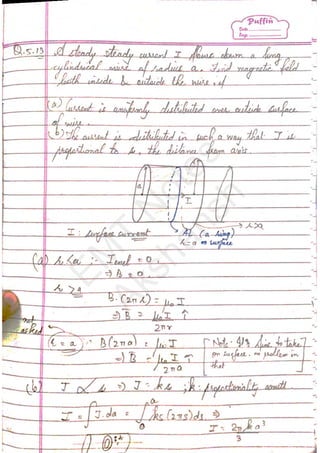 Puffin
Date
Page
Q.5.13 A steady steady current I flows down a long
cylindrical wire of radius a. Find magnetic field
both inside & outside the wire, if
(a) Current is uniformly distributed over outside surface
of wire.
(b) The current is distributed in such a way that J is
proportional to s, the distance from axis.
a
I
I : surface current
Al (a ring)
r = a on surface
(a) s < a : Iencl = 0.
⇒ B = 0.
s > a
B. (2πs) = μ₀ I
⇒ B = μ₀ I ↑
2πr
not
asked
s = a : B(2πa) = μ₀ I
⇒ B = μ₀ I ↑
2πa
Note: It's fine to take
on surface. no problem in
that
(b) J ∝ s ⇒ J = ks ; k: proportionality constt
I = ∫ J.da = ∫₀ᵃ ks (2πs)ds ⇒
I = 2πka³
3